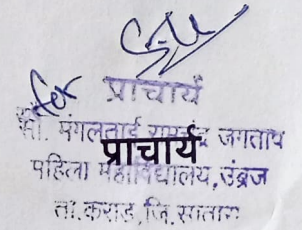 for
प्राचार्य
सौ. मंगलताई रामचंद्र जगताप
प्राचार्य
महिला महाविद्यालय, उंब्रज
ता.कराड, जि.सातारा